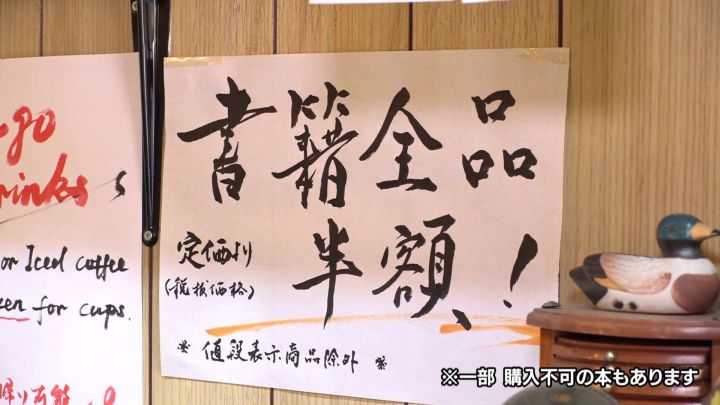 書籍全品
定価より
(税抜価格)
半額!
※ 値段表示商品除外 ※
or Iced coffee
for cups.
※一部 購入不可の本もあります